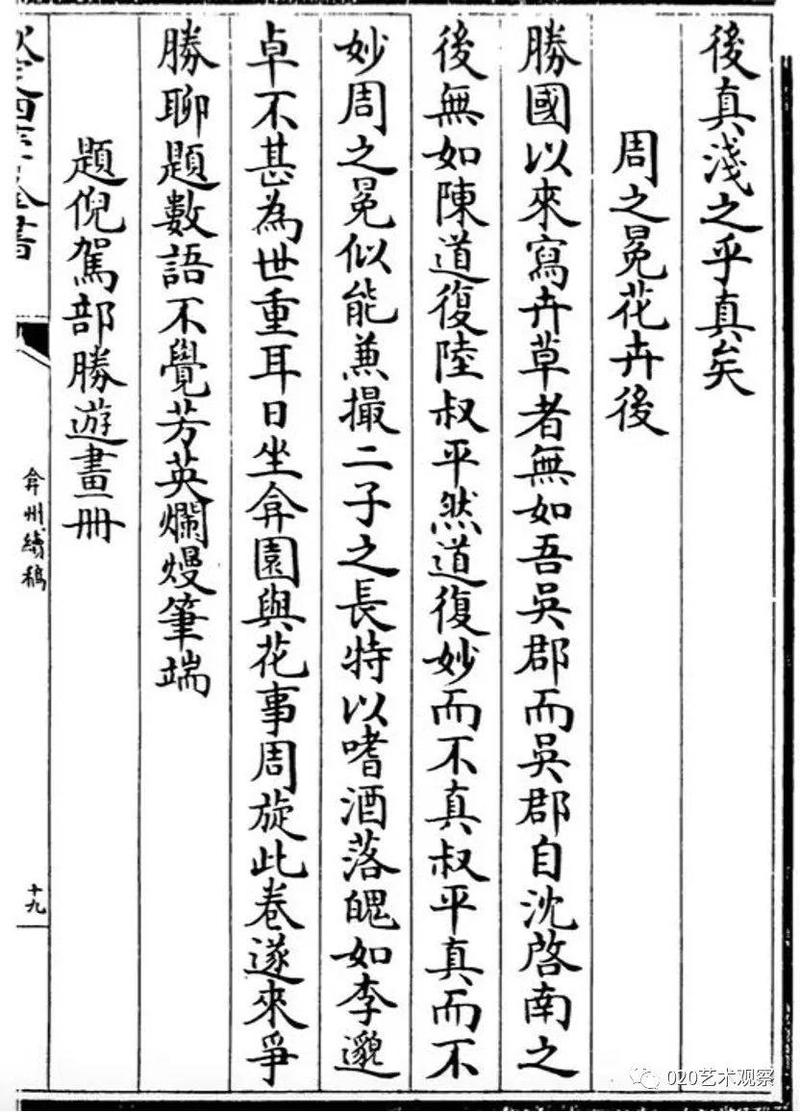 後真淺之乎真矣
周之冕花卉後
勝國以來寫卉草者無如吾吳郡而吳郡自沈啓南之
後無如陳道復陸叔平然道復妙而不真叔平真而不
妙周之冕似能兼撮二子之長特以嗜酒落魄如李邈
卓不甚為世重耳日坐弇園與花事周旋此卷遂來爭
勝聊題數語不覺芳英爛熳筆端
題倪駕部勝遊畫冊
弇州續稿
十九
020艺术观察